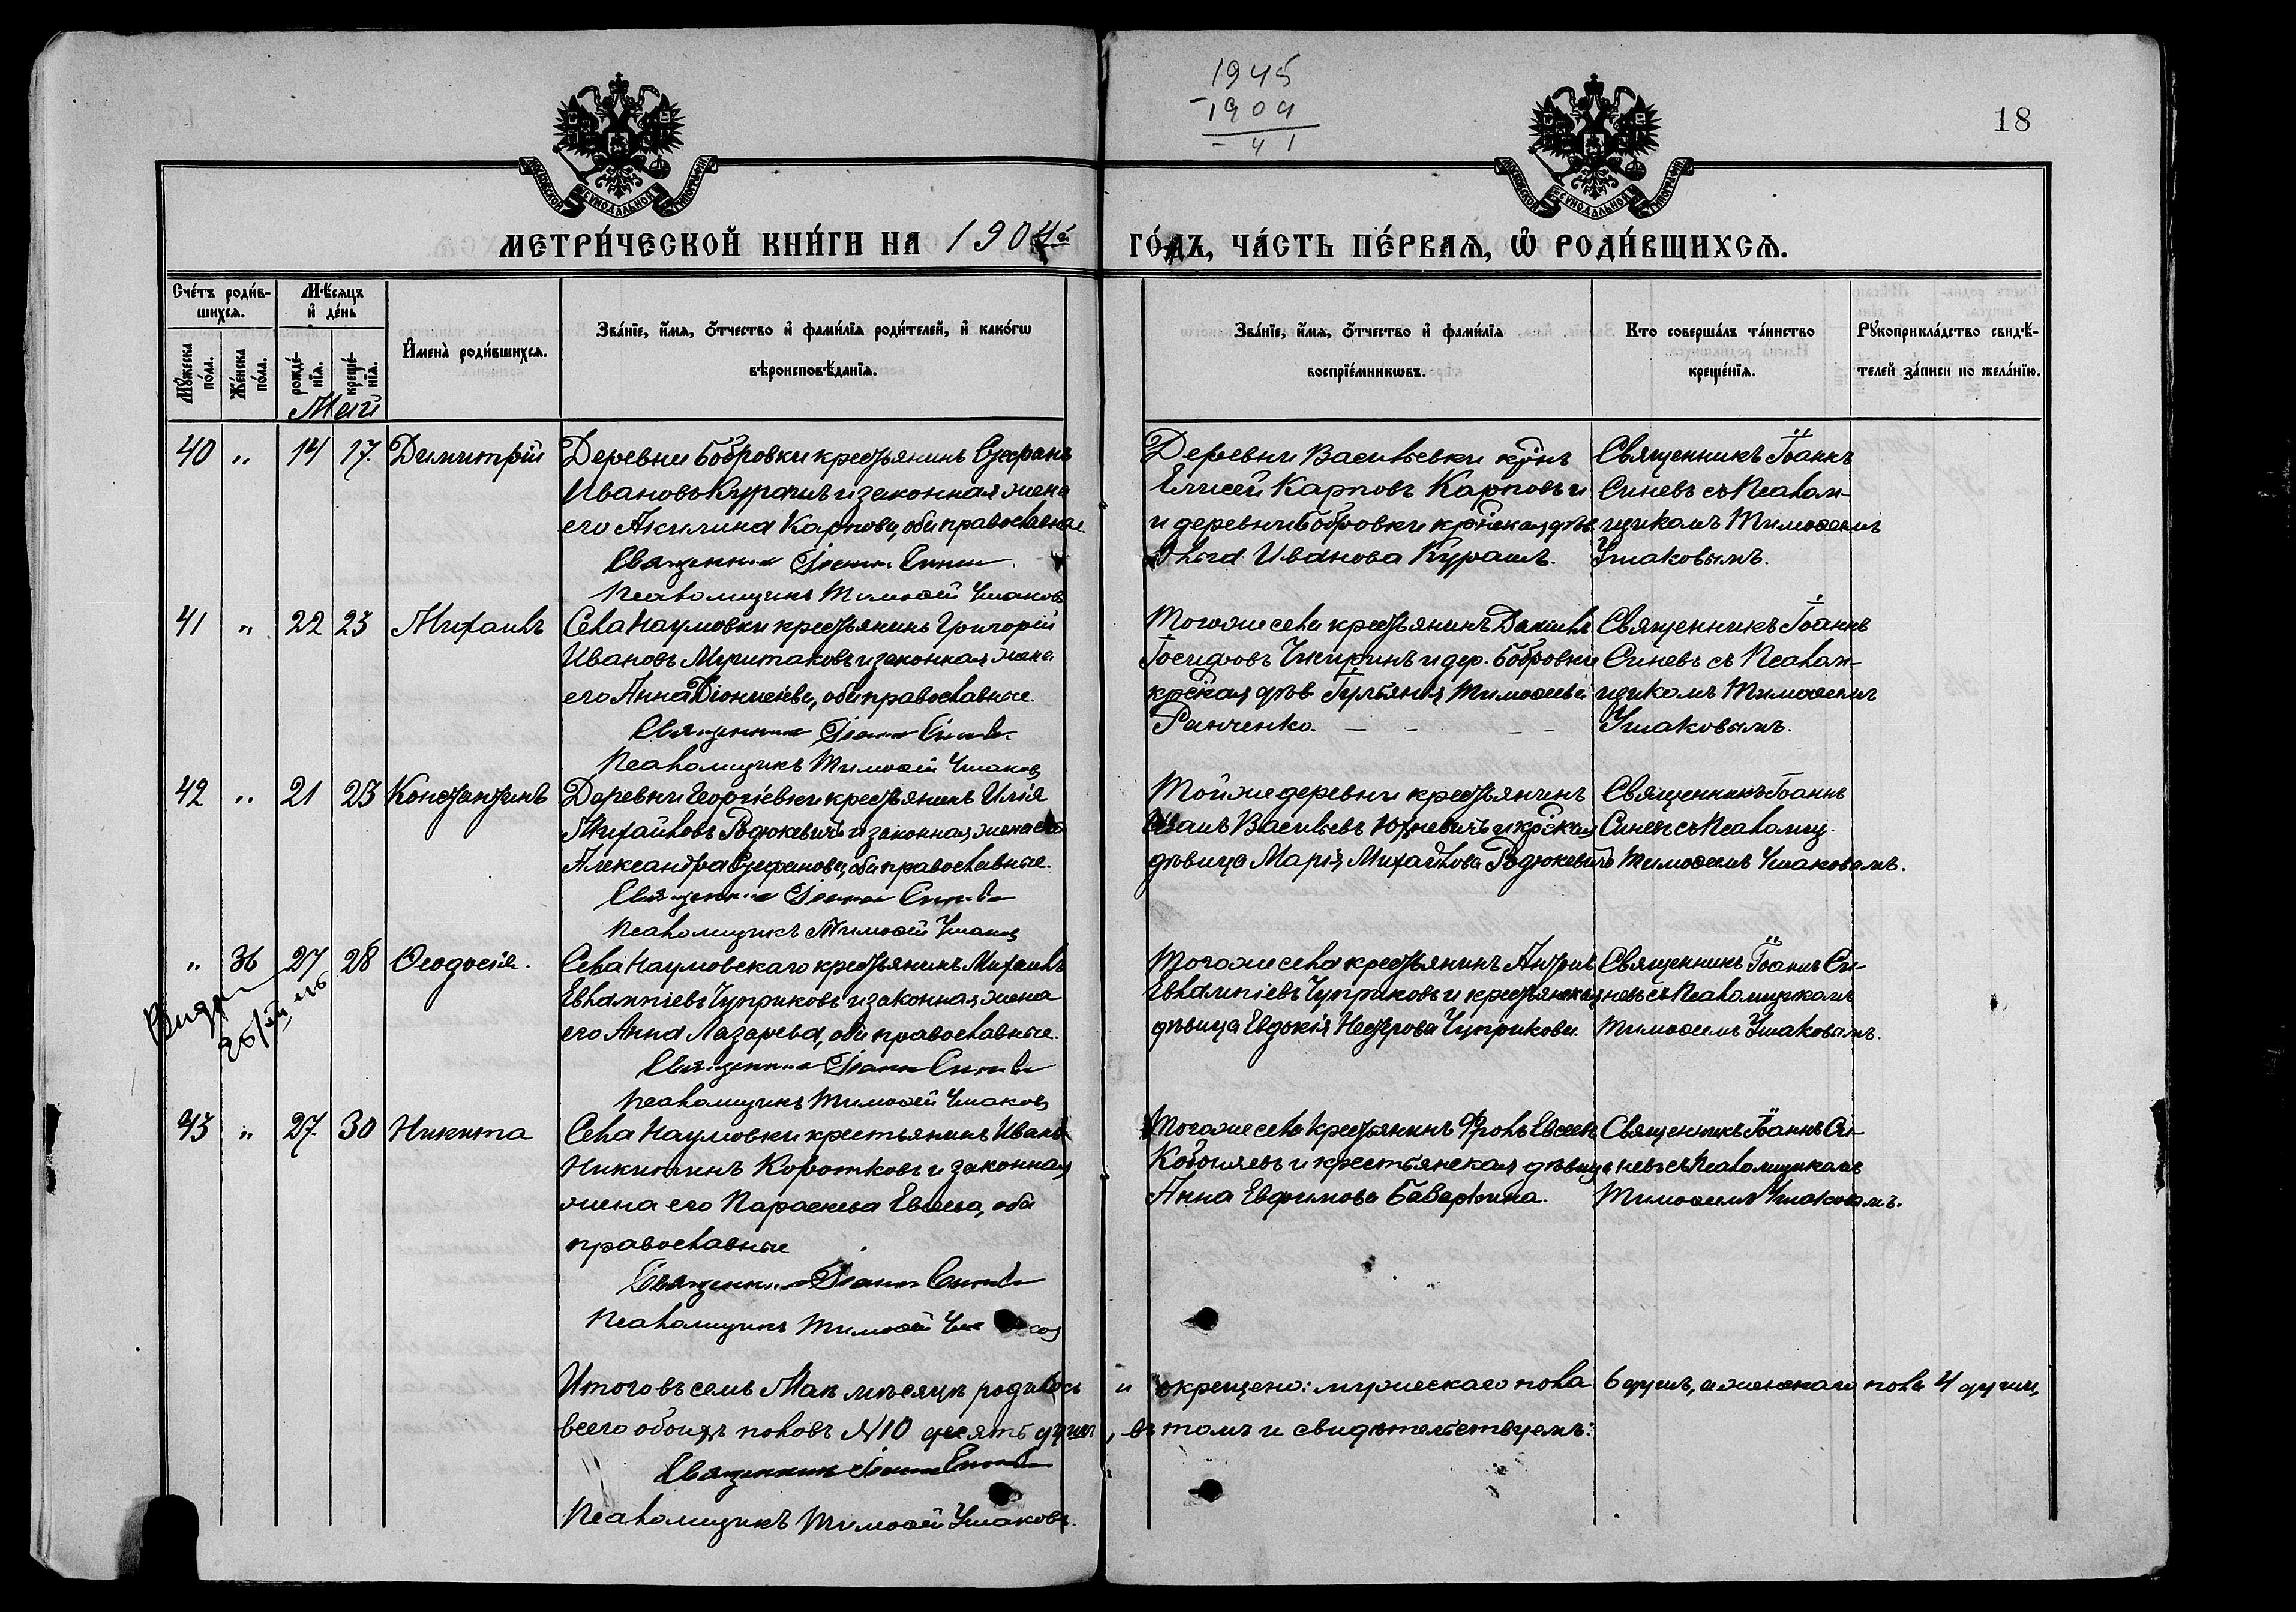 1945
-1904
- 41
18
МОСКОВСКОЙ СѴНОДАЛЬНОЙ ТИПОГРАФІИ
МОСКОВСКОЙ СѴНОДАЛЬНОЙ ТИПОГРАФІИ
МЕТРИ́ЧЕСКОЙ КНИ́ГИ НА 1904й ГО́ДЪ, ЧА́СТЬ ПЕ́РВАѦ, Ѡ РОДИ́ВШИХСѦ.
Сче́тъ роди́в-
шихсѧ.
Мꙋ́жеска по́ла.
Же́нска по́ла.
Мѣ́сѧцъ
и҆ де́нь
рожде́-
нїѧ.
креще́-
нїѧ.
И҆мена̀ роди́вшихсѧ.
Зва́нїе, и҆́мѧ, ѻ҆́тчество и҆ фами́лїѧ роди́телей, и҆ како́гѡ
вѣроисповѣ́данїѧ.
Зва́нїе, и҆́мѧ, ѻ҆́тчество и҆ фами́лїѧ
воспрїе́мникѡвъ.
Кто соверша́лъ та́инство
креще́нїѧ.
Рꙋкоприкла́дство свидѣ́-
телей за́писи по жела́нїю.
Май
40 " 14 17. Димитрій
Деревни Бобровки крестьянинъ Стефанъ
Ивановъ Курашъ и законная жена
его Акилина Карпова, оба православные
Священникъ Іоаннъ Синевъ
Псаломщикъ Тимоѳей Ушаковъ
Деревни Васильевки кр-нъ
Елисей Карповъ Карповъ и
и деревни Бобровки кр-нская дѣв.
Ольга Иванова Курашъ.
Священникъ Іоаннъ
Синевъ съ Псалом-
щикомъ Тимоѳеемъ
Ушаковымъ.
41 " 22 23 Михаилъ
Села Наумовки крестьянинъ Григорій
Ивановъ Муштаковъ и законная жена
его Анна Діонисіева, оба православные.
Священникъ Іоаннъ Синевъ
Псаломщикъ Тимоѳей Ушаковъ
Того же села крестьянинъ Даніилъ
Іосифовъ Чигиринъ и дер. Бобровки
кр-нская дѣв. Іуліанія Тимоѳеева
Ранченко.
Священникъ Іоаннъ
Синевъ съ Псалом-
щикомъ Тимоѳеемъ
Ушаковымъ.
42 " 21 23 Константинъ
Деревни Георгіевки крестьянинъ Илія
Михайловъ Родюкевичъ и законная жена его
Александра Стефанова, оба православные.
Священникъ Іоаннъ Синевъ
Псаломщикъ Тимоѳей Ушаковъ
Той же деревни крестьянинъ
Иванъ Васильевъ Юхневичъ и кр-нская
дѣвица Марія Михайлова Родюкевичъ
Священникъ Іоаннъ
Синевъ съ Псаломщ.
Тимоѳеемъ Ушаковымъ.
" 36 27 28 Ѳеодосія.
Села Наумовскаго крестьянинъ Михаилъ
Евлампіевъ Чуприковъ и законная жена
его Анна Лазарева, оба православные.
Священникъ Іоаннъ Синевъ
Псаломщикъ Тимоѳей Ушаковъ
Того же села крестьянинъ Антонъ
Евлампіевъ Чуприковъ и крестьянская
дѣвица Евдокія Несторова Чуприкова.
Священникъ Іоаннъ Си-
невъ съ Псаломщикомъ
Тимоѳеемъ Ушаковымъ.
43 " 27. 30 Никита
Села Наумовки крестьянинъ Иванъ
Никитинъ Коротковъ и законная
жена его Параскева Евсеева, оба
православные
Священникъ Іоаннъ Синевъ
Псаломщикъ Тимоѳей
Того же села крестьянинъ Фролъ Евсеевъ
и крестьянская дѣвица
Анна Евфимова
Священникъ Іоаннъ Си-
невъ съ Псаломщикомъ
Тимоѳеемъ Ушаковымъ.
Итого въ семъ Маѣ мѣсяцѣ родилось и окрещено: мужескаго пола 6 душъ, а женскаго пола 4 души,
всего обоихъ половъ №10 десять душъ, въ томъ и свидѣтельствуемъ:
Священникъ Іоаннъ Синевъ
Псаломщикъ Тимоѳей Ушаковъ.